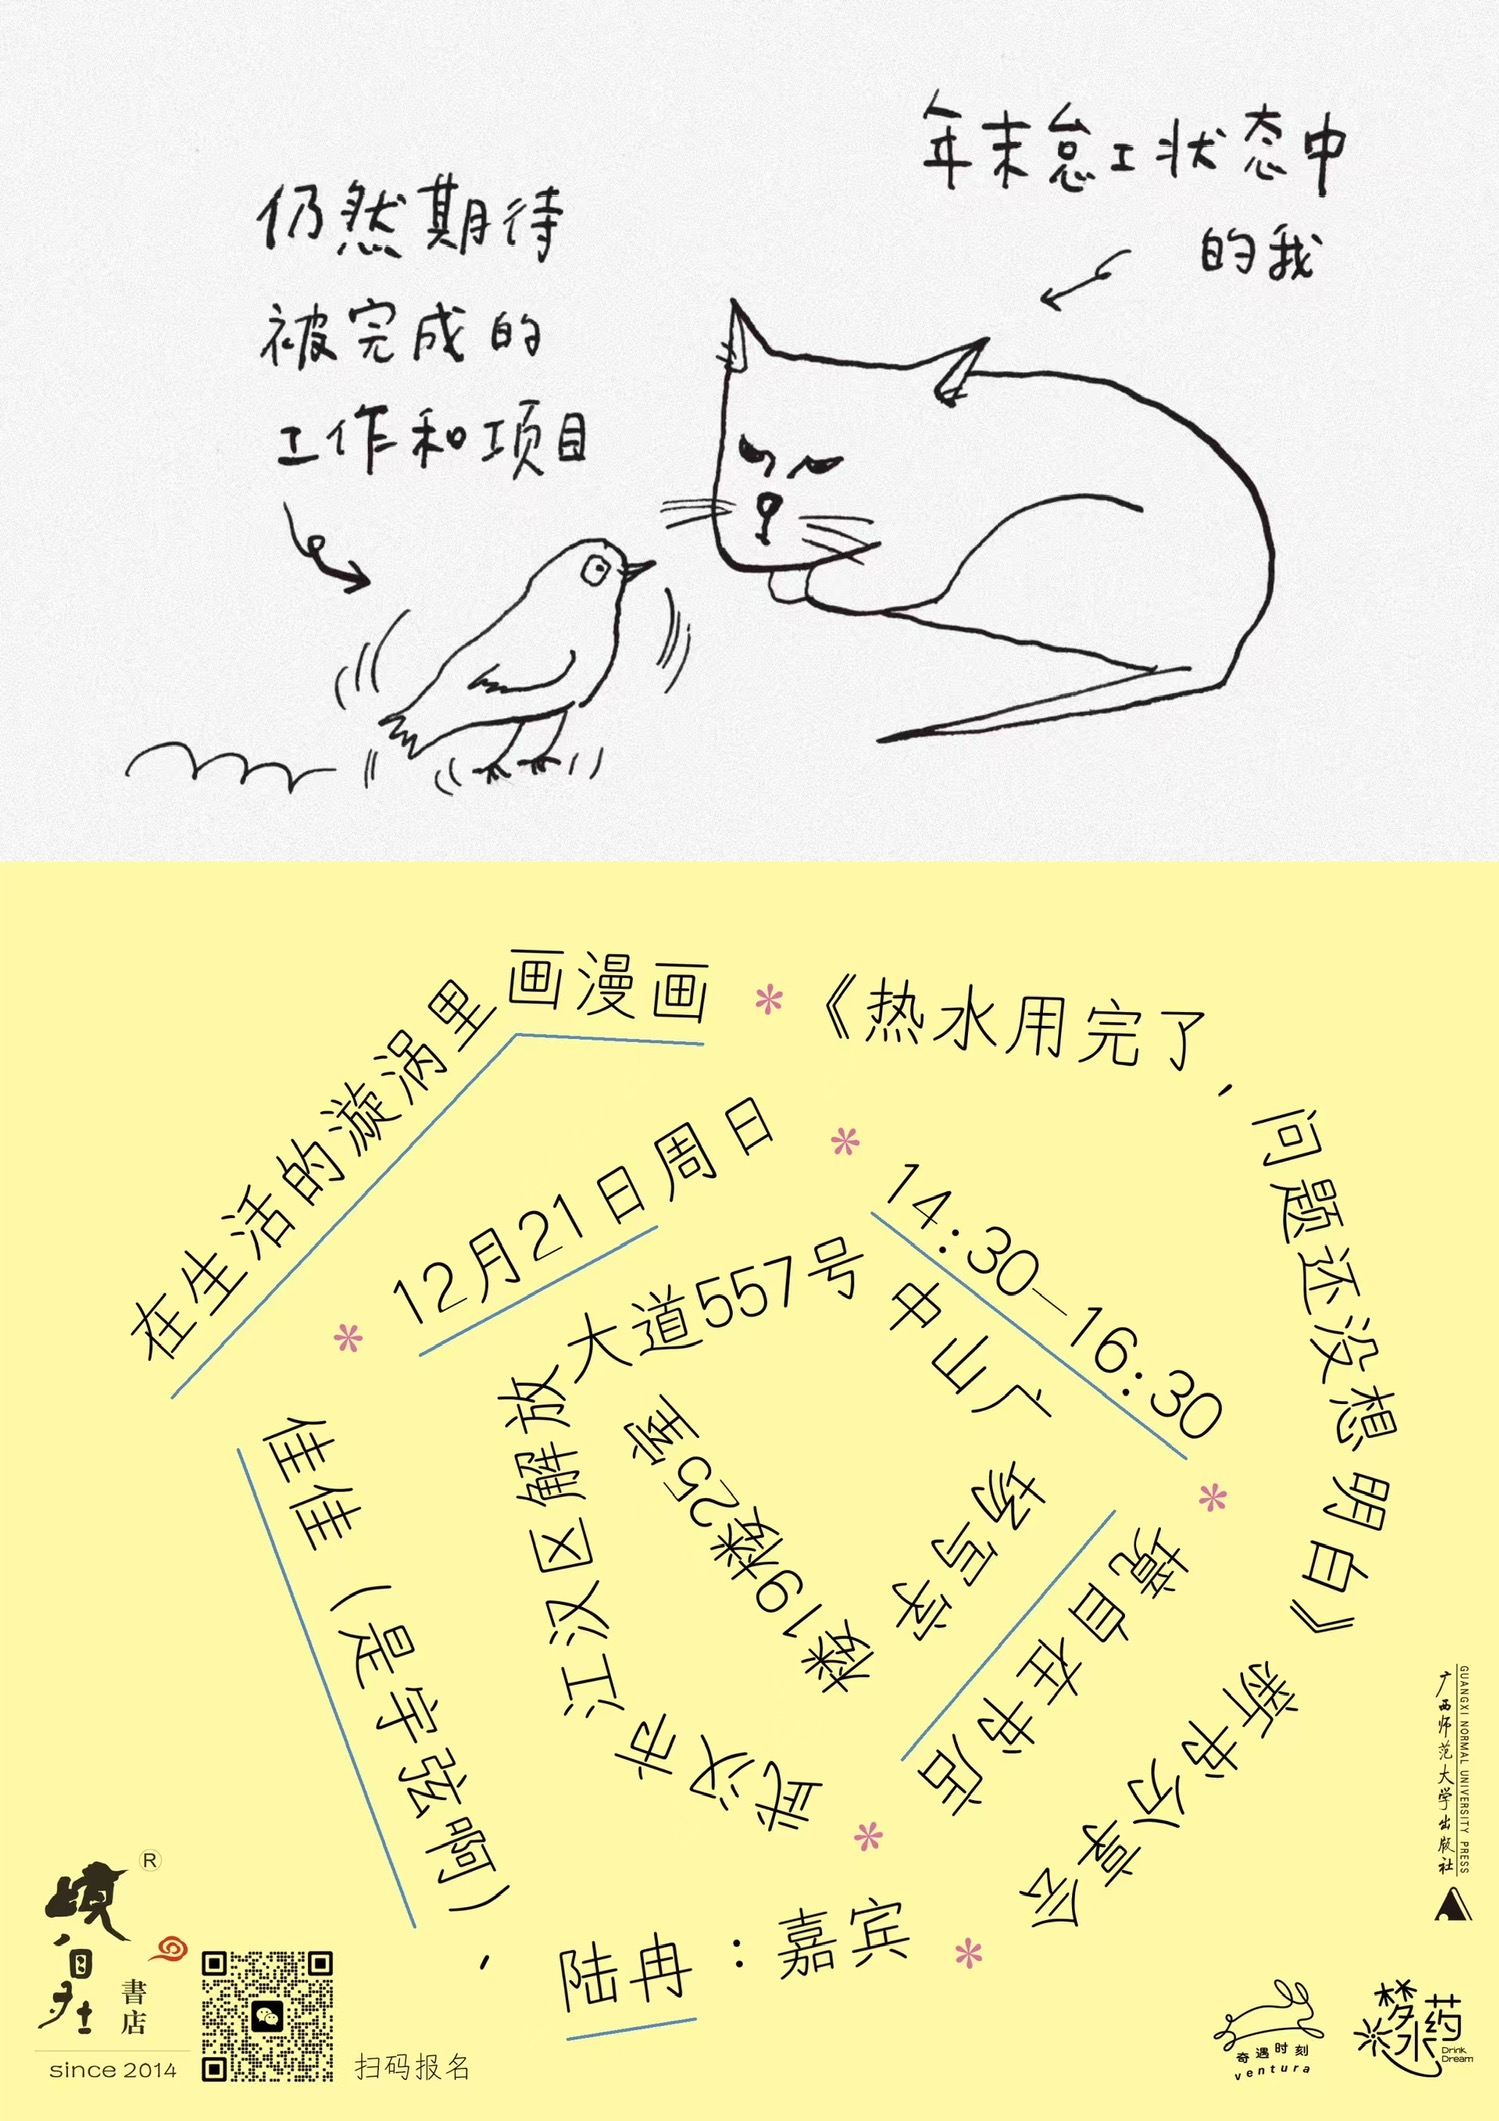 年末怠工状态中
的我
仍然期待
被完成的
工作和项目
在生活的漩涡里画漫画
*
《热水用完了，问题还没想明白》
新书分享会
*
嘉宾：
陆冉，
佳佳（是字弦啊）
*
12月21日周日
*
14:30—16:30
*
境自在书店
*
武汉市江汉区解放大道557号中山广场写字楼19楼25室
境自在
®
書店
since 2014
扫码报名
GUANGXI NORMAL UNIVERSITY PRESS
广西师范大学出版社
奇遇时刻
ventura
梦水药
Drink
Dream